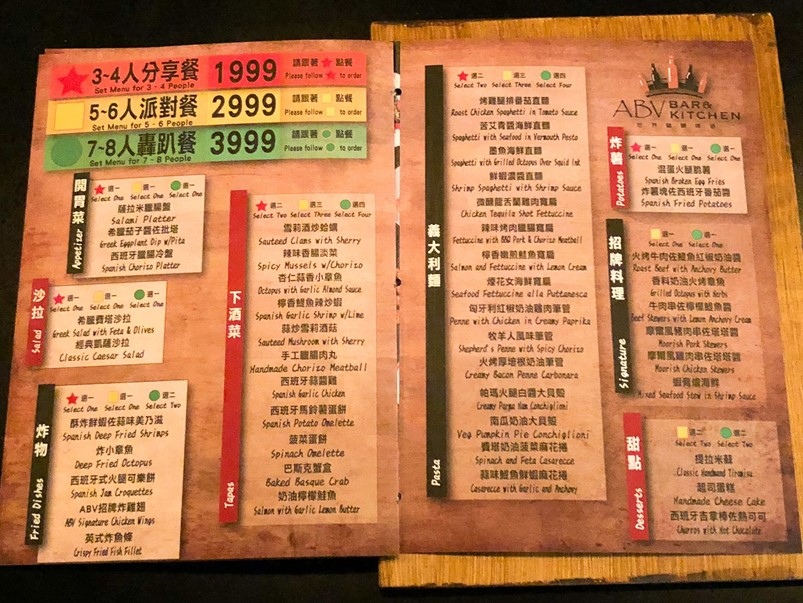 3~4人分享餐 1999 請跟著 點餐
Set Menu for 3 - 4 People Please follow to order
5~6人派對餐 2999 請跟著 點餐
Set Menu for 5 - 6 People Please follow to order
7~8人轟趴餐 3999 請跟著 點餐
Set Menu for 7 - 8 People Please follow to order
開胃菜 Appetizer
選一 選一 選一
Select One Select One Select One
薩拉米臘腸盤
Salami Platter
希臘茄子醬佐批塔
Greek Eggplant Dip w/Pita
西班牙臘腸冷盤
Spanish Chorizo Platter
沙拉 Salad
選一 選一 選一
Select One Select One Select One
希臘費塔沙拉
Greek Salad with Feta & Olives
經典凱薩沙拉
Classic Caesar Salad
炸物 Fried Dishes
選一 選一 選二
Select One Select One Select Two
酥炸鮮蝦佐蒜味美乃滋
Spanish Deep Fried Shrimps
炸小章魚
Deep Fried Octopus
西班牙式火腿可樂餅
Spanish Jam Croquettes
ABV招牌炸雞翅
ABV Signature Chicken Wings
英式炸魚條
Crispy Fried Fish Fillet
下酒菜 Tapas
選二 選三 選四
Select Two Select Three Select Four
雪莉酒炒蛤蠣
Sauteed Clams with Sherry
辣味香腸淡菜
Spicy Mussels w/Chorizo
杏仁蒜香小章魚
Octopus with Garlic Almond Sauce
檸香鯷魚辣炒蝦
Spanish Garlic Shrimp w/Lime
蒜炒雪莉酒菇
Sauteed Mushroom with Sherry
手工臘腸肉丸
Handmade Chorizo Meatball
西班牙蒜醬雞
Spanish Garlic Chicken
西班牙馬鈴薯蛋餅
Spanish Potato Omelette
菠菜蛋餅
Spinach Omelette
巴斯克蟹盒
Baked Basque Crab
奶油檸檬鮭魚
Salmon with Garlic Lemon Butter
義大利麵 Pasta
選二 選三 選四
Select Two Select Three Select Four
烤雞腿排番茄直麵
Roast Chicken Spaghetti in Tomato Sauce
苦艾青醬海鮮直麵
Spaghetti with Seafood in Vermouth Pesto
墨魚海鮮直麵
Spaghetti with Grilled Octopus Over Squid Ink
鮮蝦濃醬直麵
Shrimp Spaghetti with Shrimp Sauce
微醺龍舌蘭雞肉寬扁
Chicken Tequila Shot Fettuccine
辣味烤肉臘腸寬扁
Fettuccine with BBQ Pork & Chorizo Meatball
檸香嫩煎鮭魚寬扁
Salmon and Fettuccine with Lemon Cream
煙花女海鮮寬扁
Seafood Fettuccine alla Puttanesca
匈牙利紅椒奶油雞肉筆管
Penne with Chicken in Creamy Paprika
牧羊人風味筆管
Shepherd's Penne with Spicy Chorizo
火烤厚培根奶油筆管
Creamy Bacon Penne Carbonara
帕瑪火腿白醬大貝殼
Creamy Parma Ham Conchiglioni
南瓜奶油大貝殼
Veg Pumpkin Pie Conchiglioni
費塔奶油菠菜麻花捲
Spinach and Feta Casarecce
蒜味鯷魚鮮蝦麻花捲
Casarecce with Garlic and Anchovy
ABV BAR & KITCHEN
炸薯 Potatoes
選一 選一 選一
Select One Select One Select One
混蛋火腿脆薯
Spanish Broken Egg Fries
炸薯塊佐西班牙番茄醬
Spanish Fried Potatoes
招牌料理 Signature
選一 選一
Select One Select One
火烤牛肉佐鯷魚紅椒奶油醬
Roast Beef with Anchovy Butter
香料奶油火烤章魚
Grilled Octopus with Herbs
牛肉串佐檸檬鯷魚醬
Beef Skewers with Lemon Anchovy Cream
摩爾風豬肉串佐塔塔醬
Moorish Pork Skewers
摩爾風雞肉串佐塔塔醬
Moorish Chicken Skewers
蝦膏燴海鮮
Mixed Seafood Stew in Shrimp Sauce
甜點 Desserts
選二 選二
Select Two Select Two
提拉米蘇
Classic Handmand Tiramisu
起司蛋糕
Handmade Cheese Cake
西班牙吉拿棒佐熱可可
Churros with Hot Chocolate